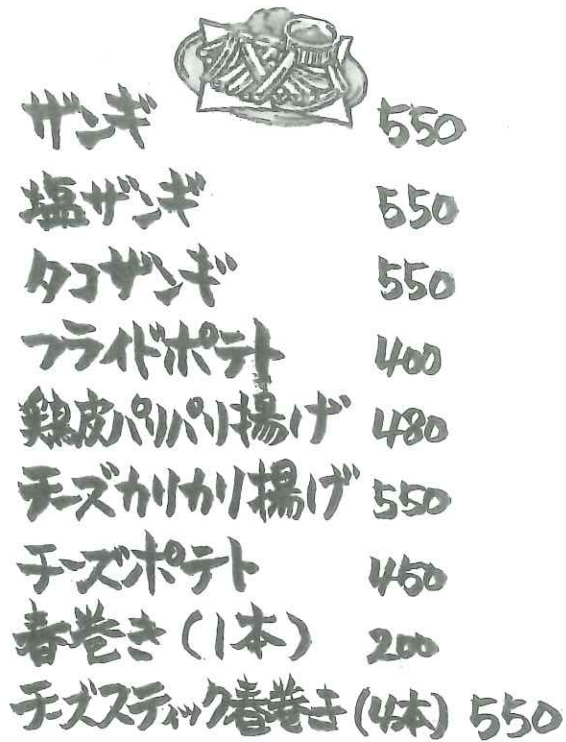 ザンギ 550
塩ザンギ 550
タコザンギ 550
フライドポテト 400
鶏皮パリパリ揚げ 480
チーズカリカリ揚げ 550
チーズポテト 450
春巻き(1本) 200
チーズスティック春巻き(4本) 550